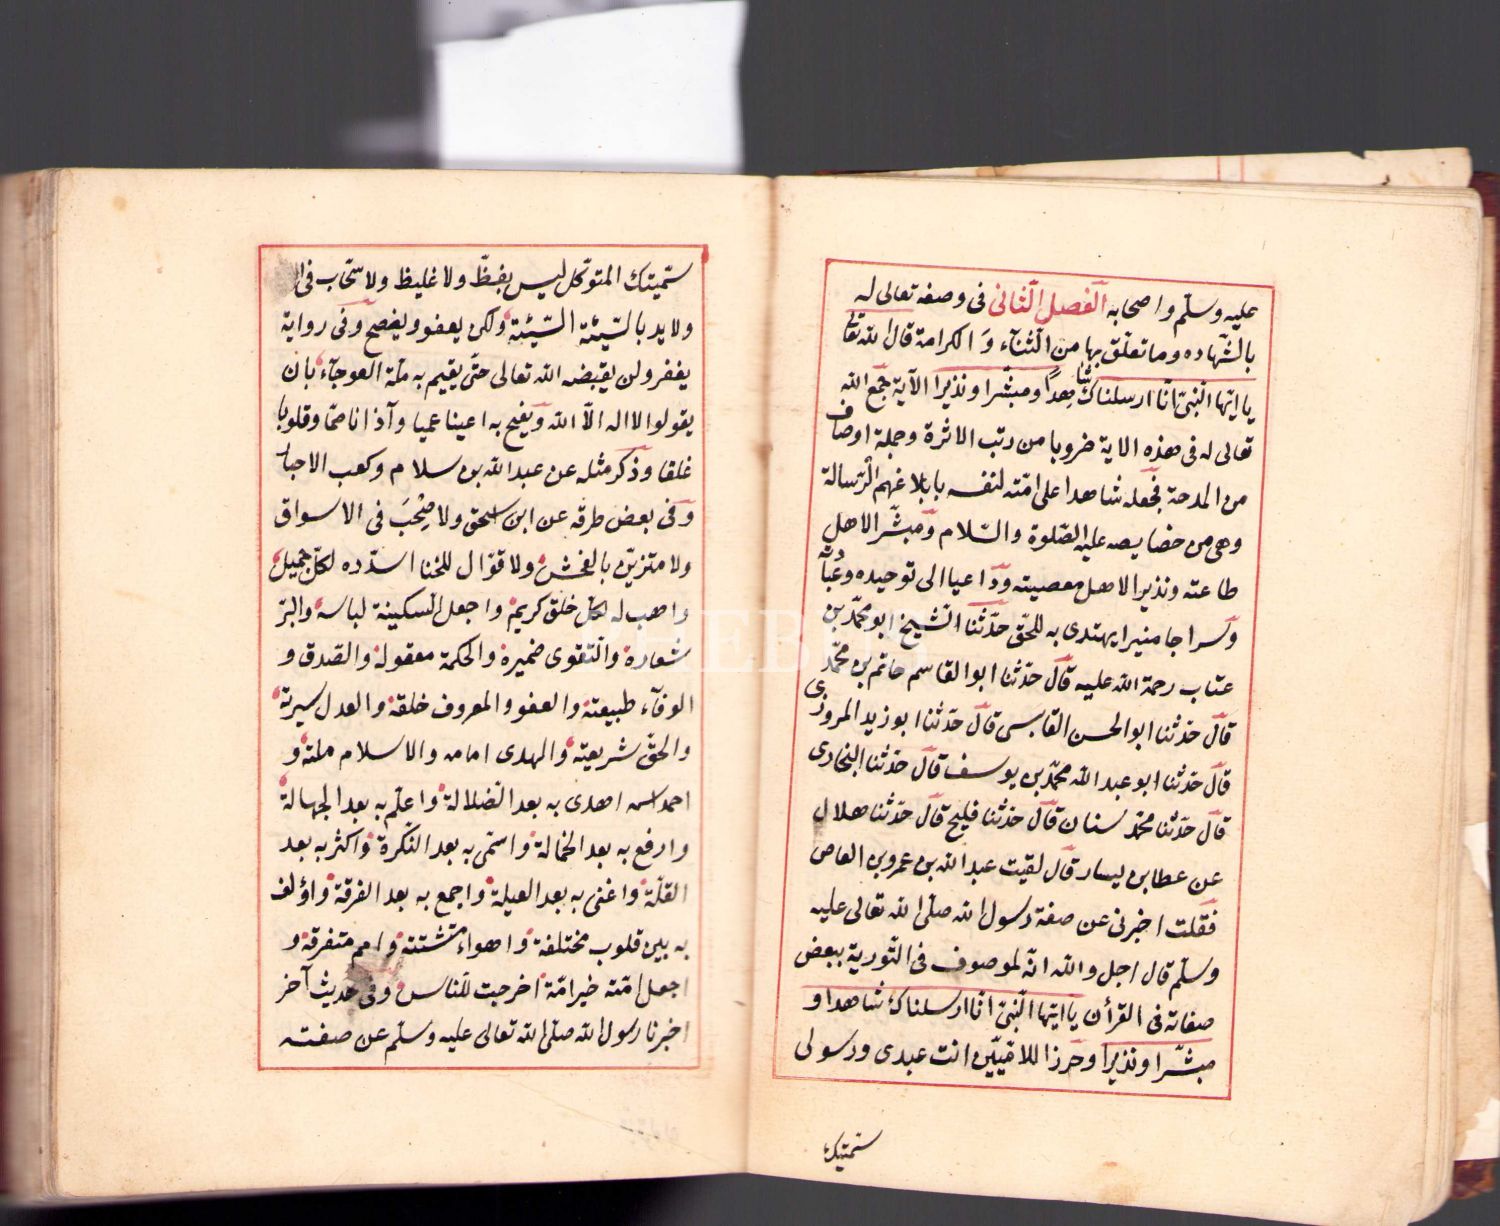 عليه وسلّم واصحابه الفصل الثانى فى وصفه تعالى له
بالشّهاده وما تعلّق بها من الثنآء وَ الكرامة قال الله تعالى
يا ايّها النّبىّ انّا ارسلناك شاهدا ومبشّرا ونذيرا الآية جمع الله
تعالى له فى هذه الاية ضروبا من رتب الاثرة وجملة اوصاف
من المدحة فجعله شاهدا على امّته لنفسه بابلاغهم الرّسالة
وهى من خصايصه عليه الصّلوة والسّلام ومبشّرا لاهل
طاعته ونذيرا لاهل معصيته وداعيا الى توحيده وعبا
وسراجا منيرا يهتدى به للحقّ حدّثنا الشّيخ ابو محمّد بن
عتاب رحمة الله عليه قال حدّثنا ابو القاسم حاتم بن محمّد
قال حدّثنا ابو الحسن القابسى قال حدّثنا ابو زيد المروزى
قال حدّثنا ابو عبد الله محمّد بن يوسف قال حدّثنا البخارى
قال حدّثنا محمّد سنان قال حدّثنا فليح قال حدّثنا هلال
عن عطا بن يسار قال لقيت عبد الله بن عمرو بن العاص
فقلت اخبرنى عن صفة رسول الله صلّى الله تعالى عليه
وسلّم قال اجل والله انّه لموصوف فى التّورية ببعض
صفاته فى القرأن يا ايّها النّبىّ انّا ارسلناك شاهدا و
مبشّرا ونذيرا وحرزا للاميّين انت عبدى ورسولى
سمّيتك
سمّيتك المتوكّل ليس بفظّ ولا غليظ ولا سخّاب فى ال
ولا يد بالسّيّئة السّيّئة ولكن يعفو ويفصح وفى رواية
يغفر ولن يقبضه الله تعالى حتّى يقيم به ملّة العوجآء بان
يقولوا لا اله الّا الله ويفتح به اعينا عميا وآذانا صمّا وقلوبا
غلفا وذكر مثله عن عبد الله بن سلام وكعب الاحبار
وفى بعض طرقه عن ابن اسحق ولا صِخْبَ فى الاسواق
ولا متزيّن بالفحش ولا قوّال للخنا اسدّده لكلّ جميل
واهب له كلّ خلق كريم واجعل السكينة لباسه والبرّ
شعاره والتّقوى ضميره والحكمة معقوله والصّدق و
الوفآء طبيعته والعفو والمعروف خلقه والعدل سيرته
والحقّ شريعته والهدى امامه والاسلام ملّته و
احمد اسمه اهدى به بعد الضّلالة واعلّم به بعد الجهالة
وارفع به بعد الخمالة واسمّى به بعد النّكرة واكثر به بعد
القلّة واغنى به بعد العيلة واجمع به بعد الفرقة واؤلف
به بين قلوب مختلفة واهواء متشتتة وامم متفرقة و
اجعل امّته خير امّة اخرجت للنّاس وفى حديث آخر
اخبرنا رسول الله صلّى الله تعالى عليه وسلّم عن صفته